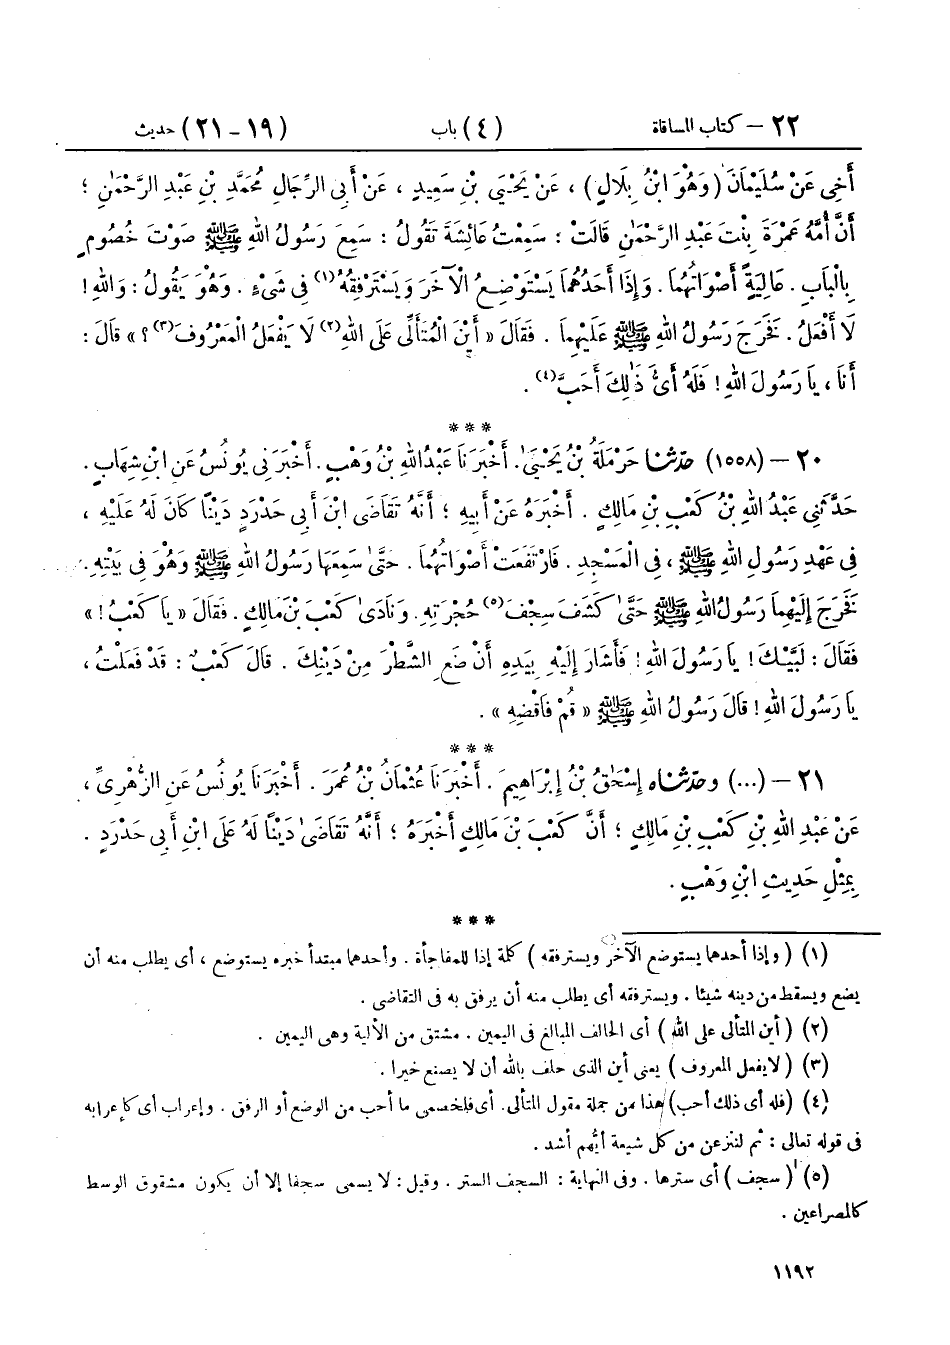 ٢٢ – كتاب المساقاة (٤) باب (١٩ – ٢١) حديث
أَخِى عَنْ سُلَيْمَانَ (وَهُوَ ابْنُ بِلَالٍ) ، عَنْ يَحْيَىٰ بْنِ سَعِيدٍ ، عَنْ أَبِى الرِّجَالِ مُحَمَّدِ بْنِ عَبْدِ الرَّحْمَٰنِ ؛
أَنَّ أُمَّهُ عَمْرَةَ بِنْتَ عَبْدِ الرَّحْمَٰنِ قَالَتْ : سَمِعْتُ عَائِشَةَ تَقُولُ : سَمِعَ رَسُولُ اللهِ ﷺ صَوْتَ خُصُومٍ
بِالْبَابِ . عَالِيَةً أَصْوَاتُهُمَا . وَإِذَا أَحَدُهُمَا يَسْتَوْضِعُ الْآخَرَ وَيَسْتَرْفِقُهُ(١) فِى شَىْءٍ . وَهُوَ يَقُولُ : وَاللهِ !
لَا أَفْعَلُ . فَخَرَجَ رَسُولُ اللهِ ﷺ عَلَيْهِمَا . فَقَالَ « أَيْنَ الْمُتَأَلِّى عَلَى اللهِ(٢) لَا يَفْعَلُ الْمَعْرُوفَ(٣) ؟ » قَالَ :
أَنَا ، يَا رَسُولَ اللهِ ! فَلَهُ أَىُّ ذَٰلِكَ أَحَبَّ(٤) .
***
٢٠ – (١٥٥٨) حَدَّثَنَا حَرْمَلَةُ بْنُ يَحْيَىٰ. أَخْبَرَنَا عَبْدُ اللهِ بْنُ وَهْبٍ . أَخْبَرَنِى يُونُسُ عَنِ ابْنِ شِهَابٍ .
حَدَّثَنِى عَبْدُ اللهِ بْنُ كَعْبِ بْنِ مَالِكٍ . أَخْبَرَهُ عَنْ أَبِيهِ ؛ أَنَّهُ تَقَاضَى ابْنَ أَبِى حَدْرَدٍ دَيْنًا كَانَ لَهُ عَلَيْهِ ،
فِى عَهْدِ رَسُولِ اللهِ ﷺ ، فِى الْمَسْجِدِ . فَارْتَفَعَتْ أَصْوَاتُهُمَا . حَتَّىٰ سَمِعَهَا رَسُولُ اللهِ ﷺ وَهُوَ فِى بَيْتِهِ .
فَخَرَجَ إِلَيْهِمَا رَسُولُ اللهِ ﷺ حَتَّىٰ كَشَفَ سِجْفَ(٥) حُجْرَتِهِ. وَنَادَىٰ كَعْبَ بْنَ مَالِكٍ . فَقَالَ « يَا كَعْبُ ! »
فَقَالَ : لَبَّيْكَ ! يَا رَسُولَ اللهِ ! فَأَشَارَ إِلَيْهِ بِيَدِهِ أَنْ ضَعِ الشَّطْرَ مِنْ دَيْنِكَ . قَالَ كَعْبٌ : قَدْ فَعَلْتُ ،
يَا رَسُولَ اللهِ ! قَالَ رَسُولُ اللهِ ﷺ « قُمْ فَاقْضِهِ » .
***
٢١ – (...) وحَدَّثَنَاه إِسْحَٰقُ بْنُ إِبْرَاهِيمَ . أَخْبَرَنَا عُثْمَانُ بْنُ عُمَرَ . أَخْبَرَنَا يُونُسُ عَنِ الزُّهْرِىِّ ،
عَنْ عَبْدِ اللهِ بْنِ كَعْبِ بْنِ مَالِكٍ ؛ أَنَّ كَعْبَ بْنَ مَالِكٍ أَخْبَرَهُ ؛ أَنَّهُ تَقَاضَىٰ دَيْنًا لَهُ عَلَى ابْنِ أَبِى حَدْرَدٍ .
بِمِثْلِ حَدِيثِ ابْنِ وَهْبٍ .
***
(١) (وإذا أحدهما يستوضع الآخر ويسترفقه ) كلمة إذا للمفاجأة . وأحدهما مبتدأ خبره يستوضع ، أى يطلب منه أن
يضع ويسقط من دينه شيئا . ويسترفقه أى يطلب منه أن يرفق به فى التقاضى .
(٢) (أين المتألى على الله ) أى الحالف المبالغ فى اليمين . مشتق من الألية وهى اليمين .
(٣) (لا يفعل المعروف ) يعنى أين الذى حلف بالله أن لا يصنع خيرا .
(٤) (فله أى ذلك أحب) هذا من جملة مقول المتألى. أى فلخصمى ما أحب من الوضع أو الرفق . وإعراب أى كإعرابه
فى قوله تعالى : ثم لننزعن من كل شيعة أيُّهم أشد .
(٥) (سجف ) أى سترها . وفى النهاية : السجف الستر . وقيل : لا يسمى سجفا إلا أن يكون مشقوق الوسط
كالمصراعين .
١١٩٢